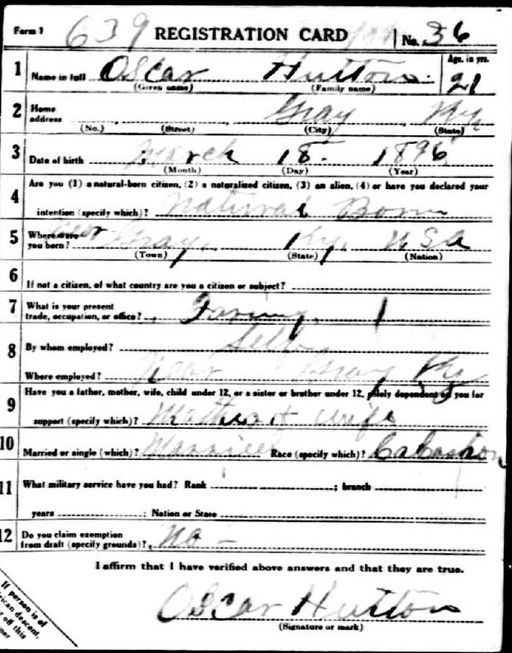 Form 1 639 REGISTRATION CARD No. 36
1 Name in full Oscar Hutton Age, in yrs. 21
(Given name) (Family name)
2 Home address Gray Ky
(No.) (Street) (City) (State)
3 Date of birth March 18 1896
(Month) (Day) (Year)
Are you (1) a natural-born citizen, (2) a naturalized citizen, (3) an alien, (4) or have you declared your
4 intention (specify which)? Natural Born
5 Where were you born? near Gray, Ky. USA
(Town) (State) (Nation)
6 If not a citizen, of what country are you a citizen or subject?
7 What is your present trade, occupation, or office? Farming
8 By whom employed? Self
Where employed? Near Gray Ky
9 Have you a father, mother, wife, child under 12, or a sister or brother under 12, solely dependent on you for
support (specify which)? Mother & wife
10 Married or single (which)? Married Race (specify which)? Cacashon
11 What military service have you had? Rank ; branch
years ; Nation or State
12 Do you claim exemption from draft (specify grounds)? No -
I affirm that I have verified above answers and that they are true.
Oscar Hutton
(Signature or mark)
If person is of
rican descent,
off this
ner